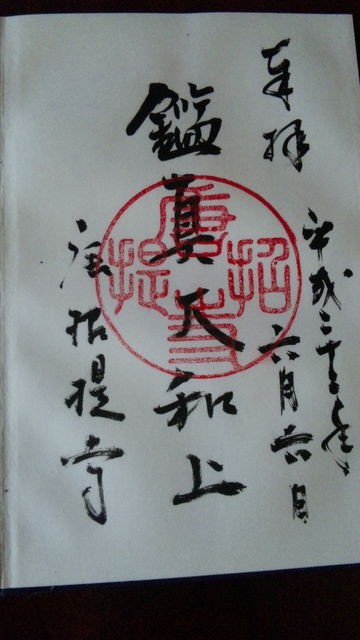 奉拝
平成二十二年
六月六日
鑑真大和上
唐招提寺
唐招提寺